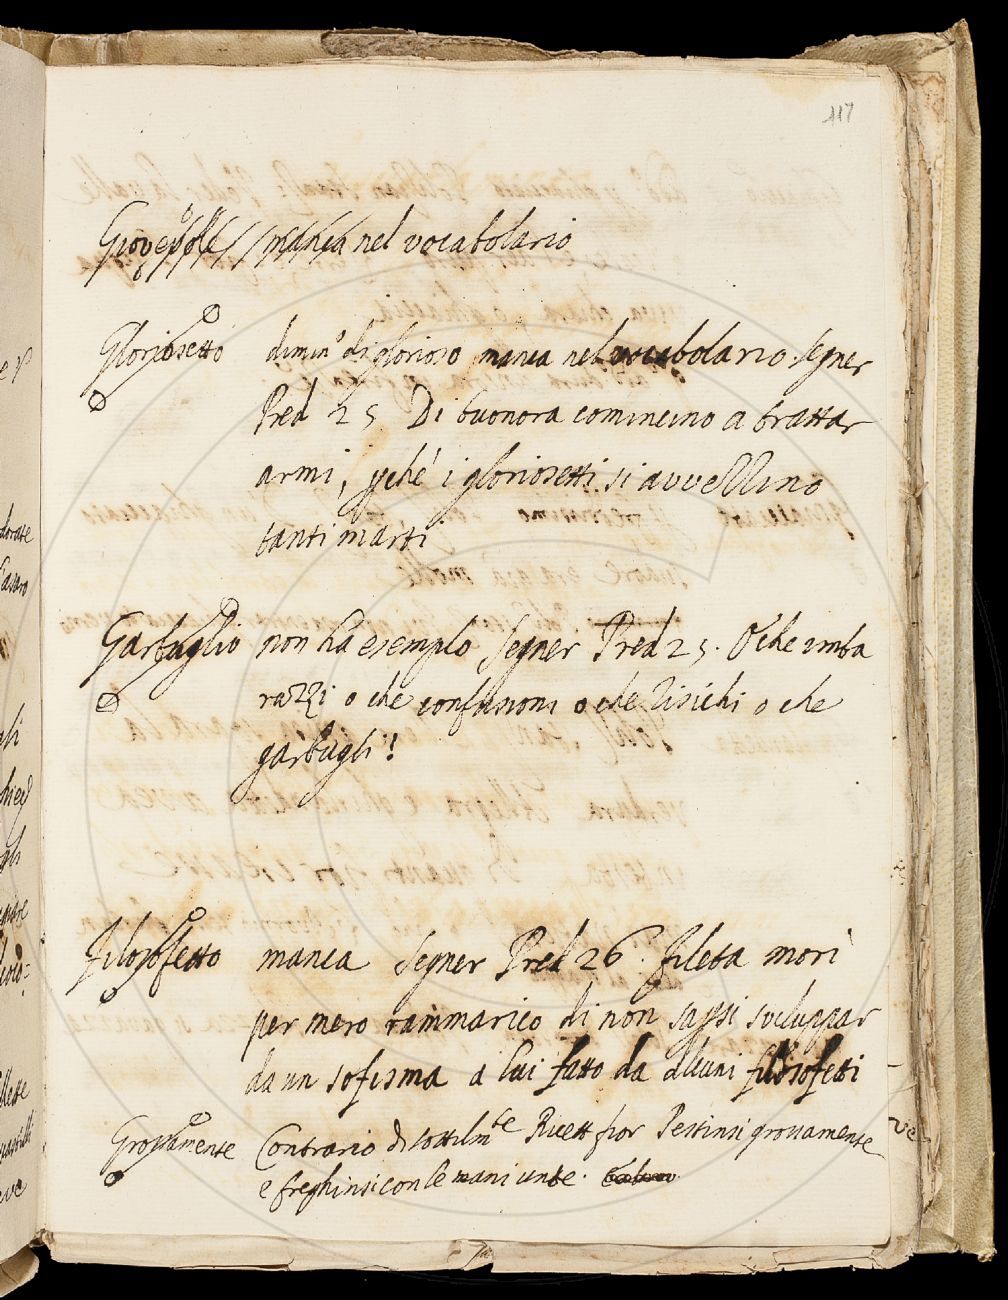 117
manca nel vocabolario
Gloriosetto dimin.o di glorioso manca nel vocabolario. Segner
Pred 25 Di buonora comincino a brattar
armi, pché i gloriosetti si avvellino
tanti marti
Garbuglio non ha esemplo Segner Pred 25. O che imba
razzi o che confusioni o che risichi o che
garbugli!
Filosofetto manca Segner Pred 26. fileta morì
per mero rammarico di non sapsi sviluppar
da un sofisma a lui fatto da alcuni filosofetti
Grossamente Contrario di sottilmte Ricett fior Pestinsi grossamente
e freghinsi con le mani unte.